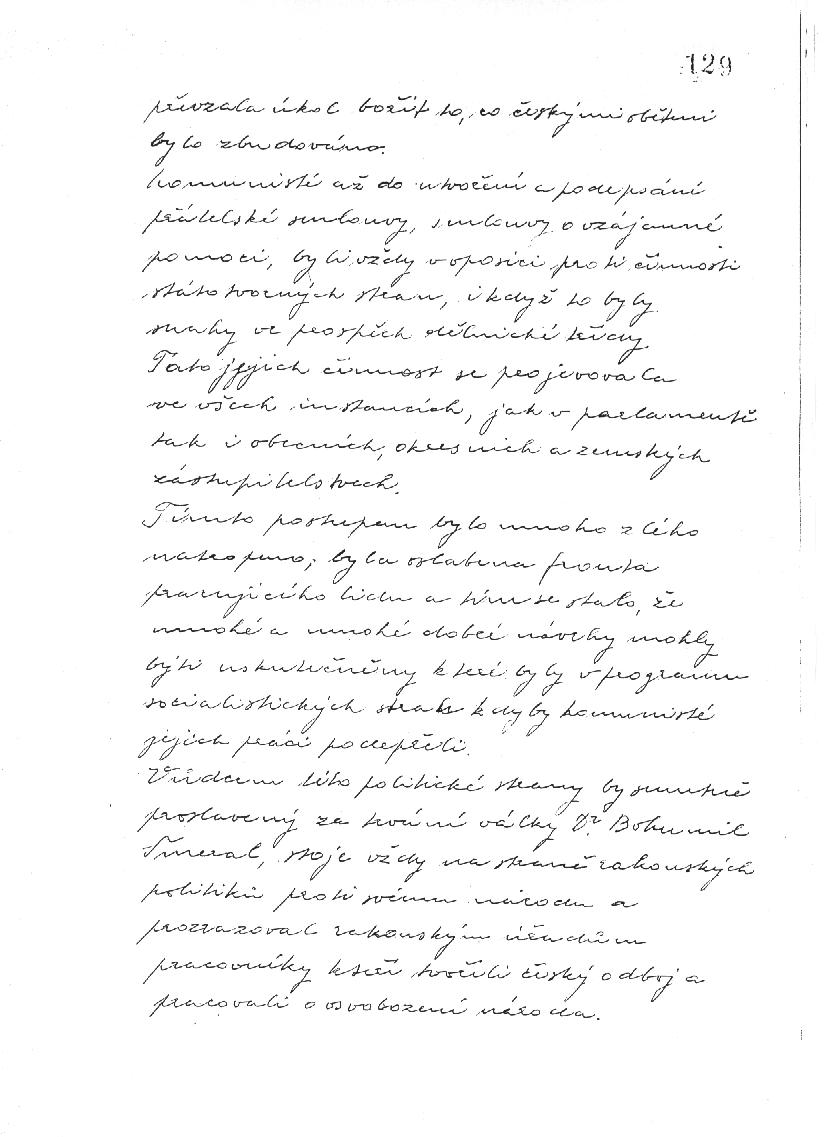 129
převzala úkol bořit to, co českými oběťmi
bylo zbudováno.
Komunisté až do utvoření a podepsání
přátelské smlouvy, smlouvy o vzájemné
pomoci, byli vždy v oposici proti činnosti
státotvorných stran, i když to byly
snahy ve prospěch dělnické třídy.
Tato jejich činnost se projevovala
ve všech instancích, jak v parlamentě
tak i obecních, okresních a zemských
zástupitelstvech.
Tímto postupem bylo mnoho zlého
natropeno, byla oslabena fronta
pracujícího lidu a tím se stalo, že
mnohé a mnohé dobré návrhy mohly
býti uskutečněny kteri byly v programu
socialistických stran kdyby komunisté
jejich práci podepřeli.
Vůdcem této politické strany byl smutně
proslavený za první války Dr Bohumil
Šmeral, stoje vždy na straně rakouských
politiků proti svému národu a
prozrazoval rakouským úřadům
pracovníky kteří tvořili český odboj a
pracovali o osvobození národa.